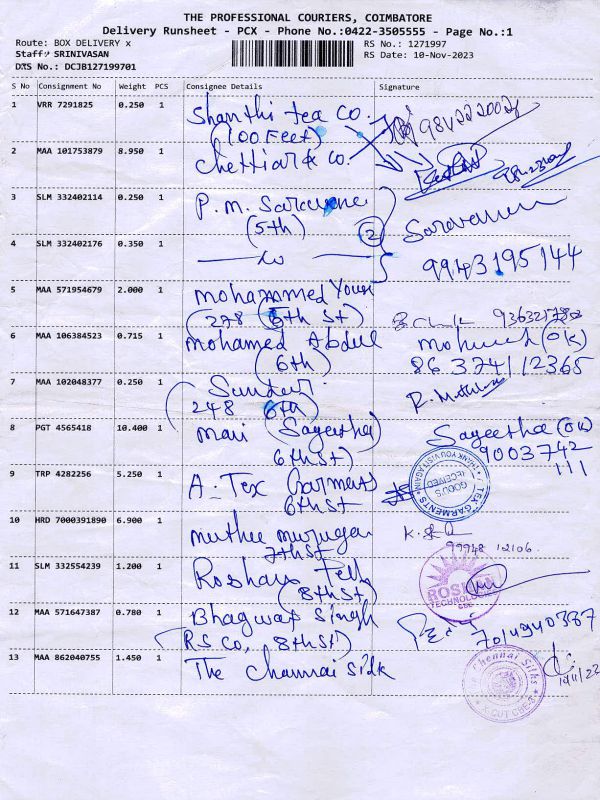 THE PROFESSIONAL COURIERS, COIMBATORE
Delivery Runsheet - PCX - Phone No.:0422-3505555 - Page No.:1
Route: BOX DELIVERY x
RS No.: 1271997
Staff: SRINIVASAN
RS Date: 10-Nov-2023
DRS No.: DCJB127199701
S No Consignment No Weight PCS Consignee Details Signature
1 VRR 7291825 0.250 1 Shanthi tea Co.
(100 Feet)
2 MAA 101753879 8.950 1 Chettiar & Co.
3 SLM 332402114 0.250 1 P.M. Saravana
(5th) 2 Saravanan
4 SLM 332402176 0.350 1
99431 95144
5 MAA 571954679 2.000 1 Mohammed
(278 5th St)
6 MAA 106384523 0.715 1 Mohamed Abdul
(6th) 86 3741 12365
7 MAA 102048377 0.250 1 Sundar
248 6th)
8 PGT 4565418 10.400 1 Mari (Sageetha) Sageetha (OK)
6th St) 9003742
111
9 TRP 4282256 5.250 1 A-Tex Garments
6th St
TEK GARMENTS
GOODS RECEIVED
THANK YOU VISIT AGAIN
10 HRD 7000391890 6.900 1 Muthu Murugan
7th St 99948 12106
11 SLM 332554239 1.200 1 Roshan Tech
(8th St)
ROSHAN
TECHNOLOGY
CBE
12 MAA 571647387 0.780 1 Bhagwat Singh
(RS Co, 8th St) 7014940337
13 MAA 862040755 1.450 1 The Chennai Silk
The Chennai Silks